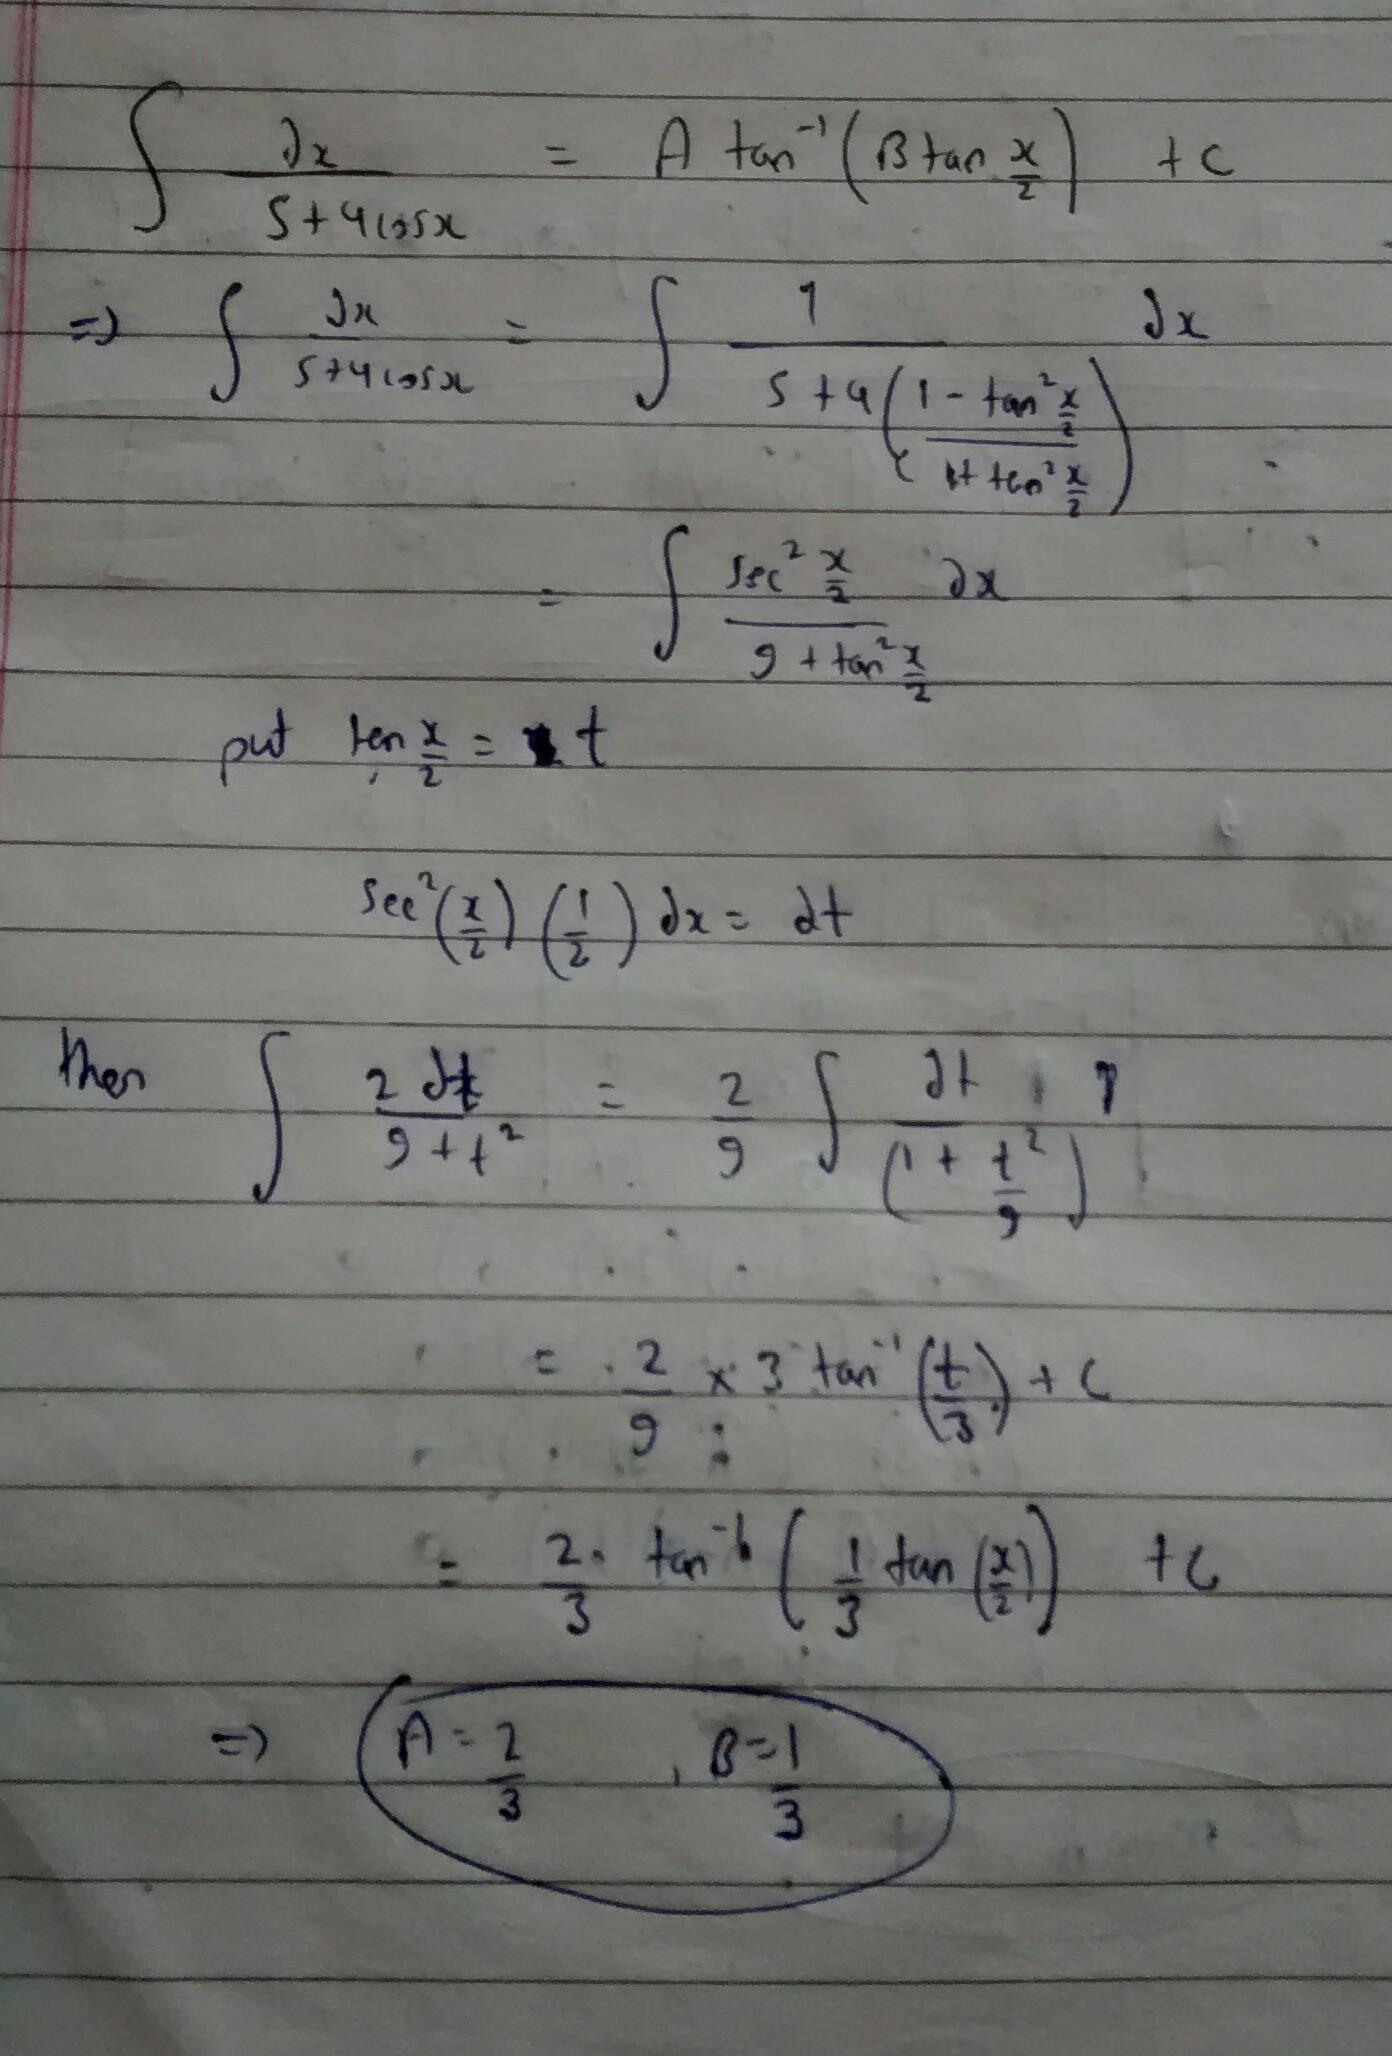 ∫ dx/(5+4cosx) = A tan⁻¹(B tan x/2) + c
=) ∫ dx/(5+4cosx) = ∫ 1/(5+4((1-tan² x/2)/(1+tan² x/2))) dx
= ∫ (sec² x/2 dx)/(9+tan² x/2)
put tan x/2 = t
sec²(x/2) (1/2) dx = dt
then ∫ 2dt/(9+t²) = 2/9 ∫ dt/(1+t²/9)
= 2/9 × 3 tan⁻¹(t/3) + c
= 2/3 . tan⁻¹(1/3 tan(x/2)) + c
=) A = 2/3 , B = 1/3